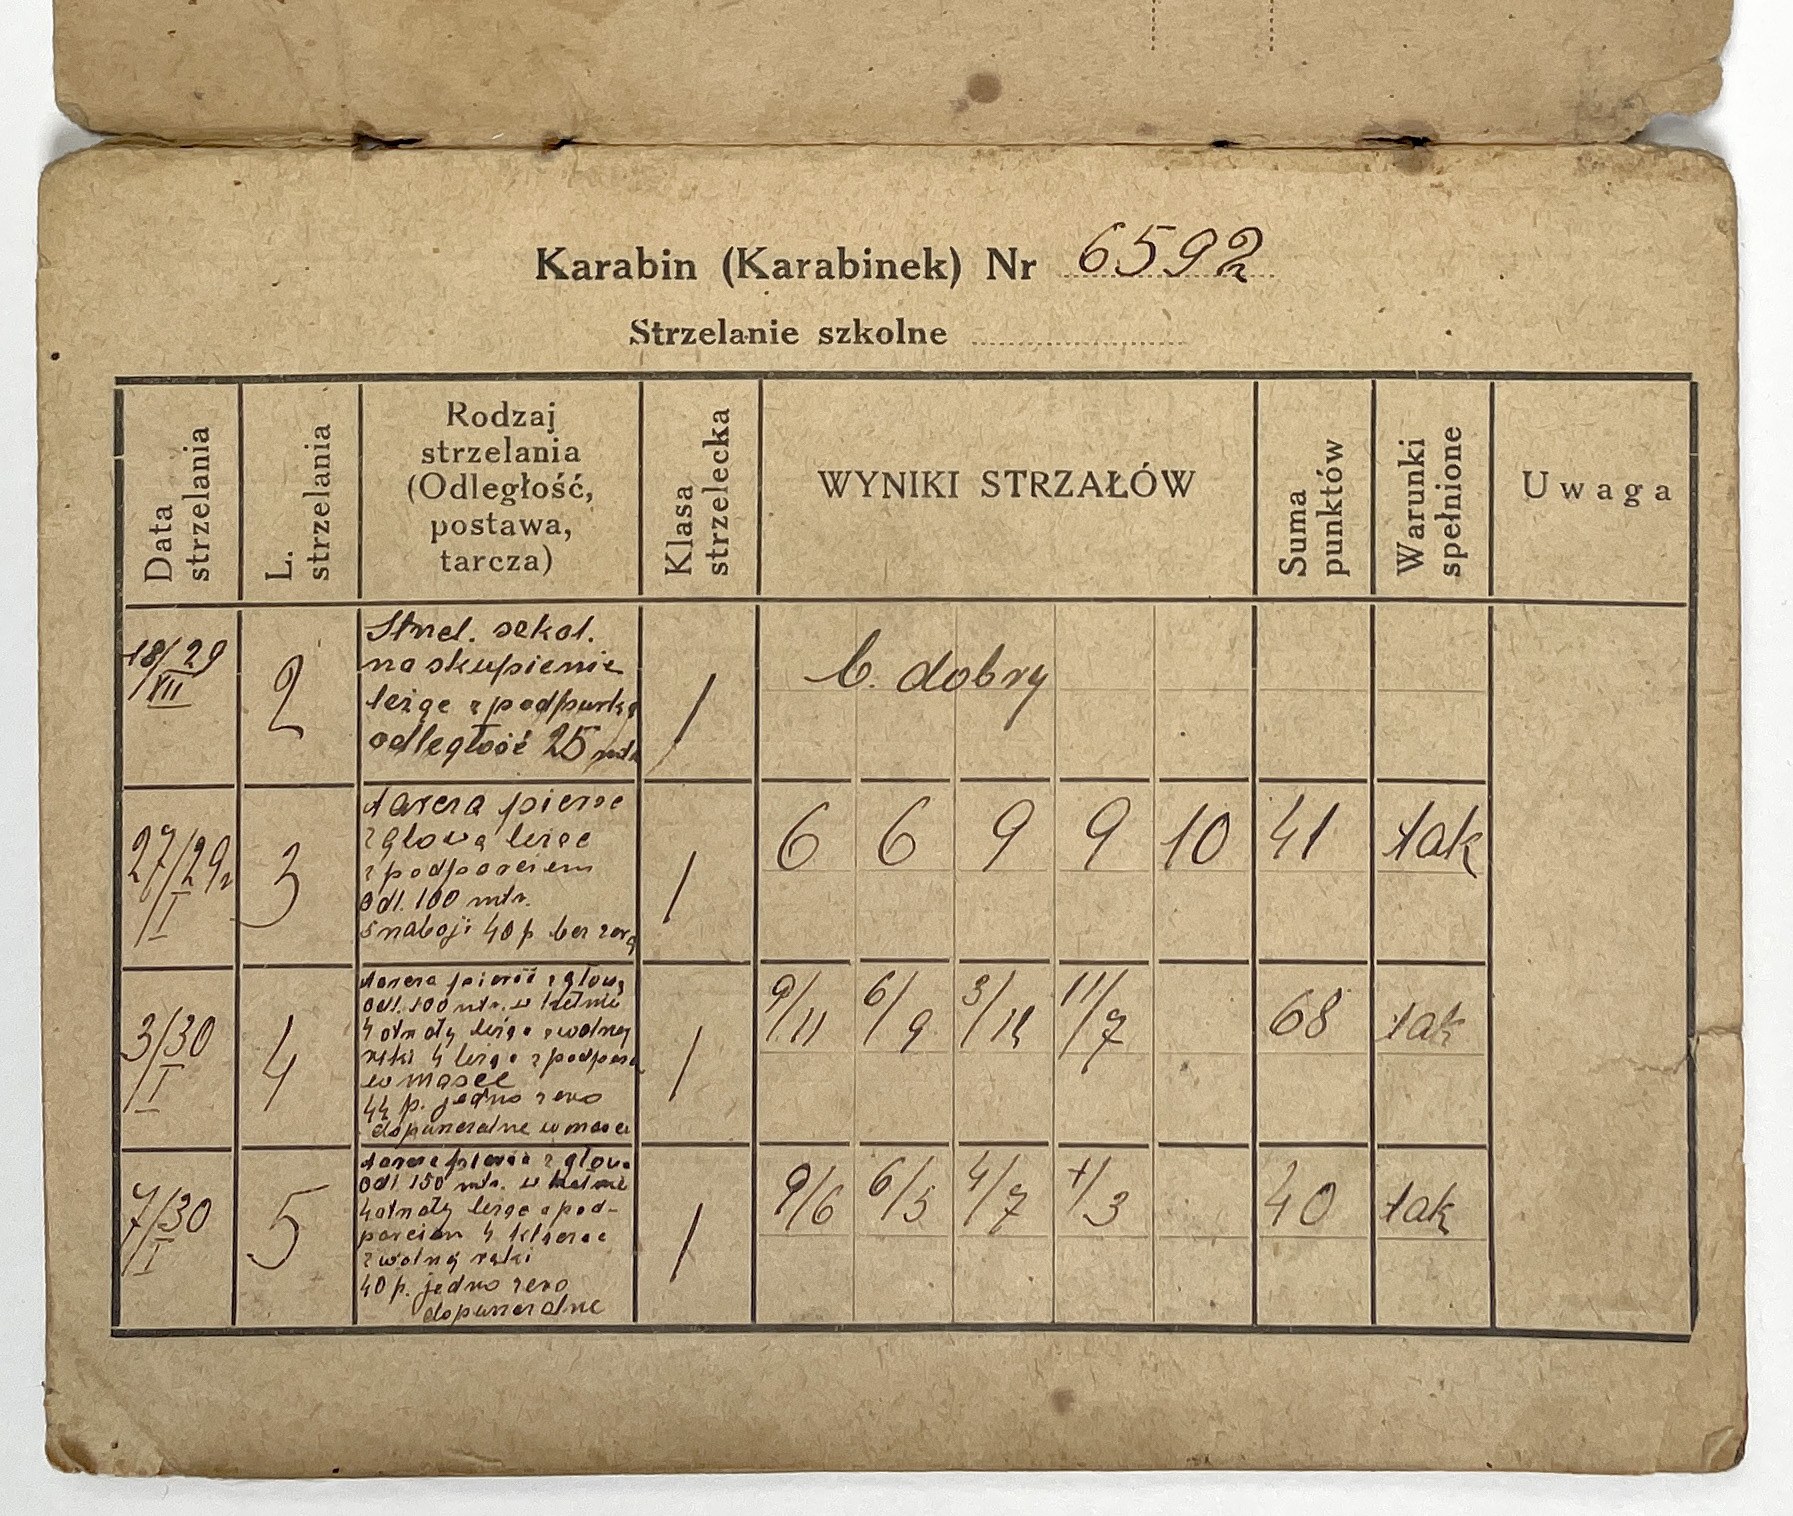 Karabin (Karabinek) Nr 6592
Strzelanie szkolne
Data strzelania
L. strzelania
Rodzaj
strzelania
(Odległość,
postawa,
tarcza)
Klasa strzelecka
WYNIKI STRZAŁÓW
Suma punktów
Warunki spełnione
Uwaga
18/29
XII
2
Strzel. szkol.
na skupienie
leżąc z podpurką
odległość 25 mtr
1
b. dobry
27/29
I
3
tarcza piersc
z głową leżąc
z podparciem
odl. 100 mtr.
5 naboji 40 p bez zera
1
6 6 9 9 10
41
tak
3/30
I
4
tarcza pierś z głową
odl. 100 mtr. w hełmie
4 strzały leżąc z wolnej
ręki 4 leżąc z
w masce
44 p. jedno zero
w masce
1
9/11 6/9 11/7
68
tak
7/30
I
5
tarcza pierś z głową
odl 150 mtr. w hełmie
4 strzały leżąc z pod-
parciem 4 klęcząc
z wolną ręki
40 p. jedno zero
1
9/6 6/5 4/7 +/3
40
tak